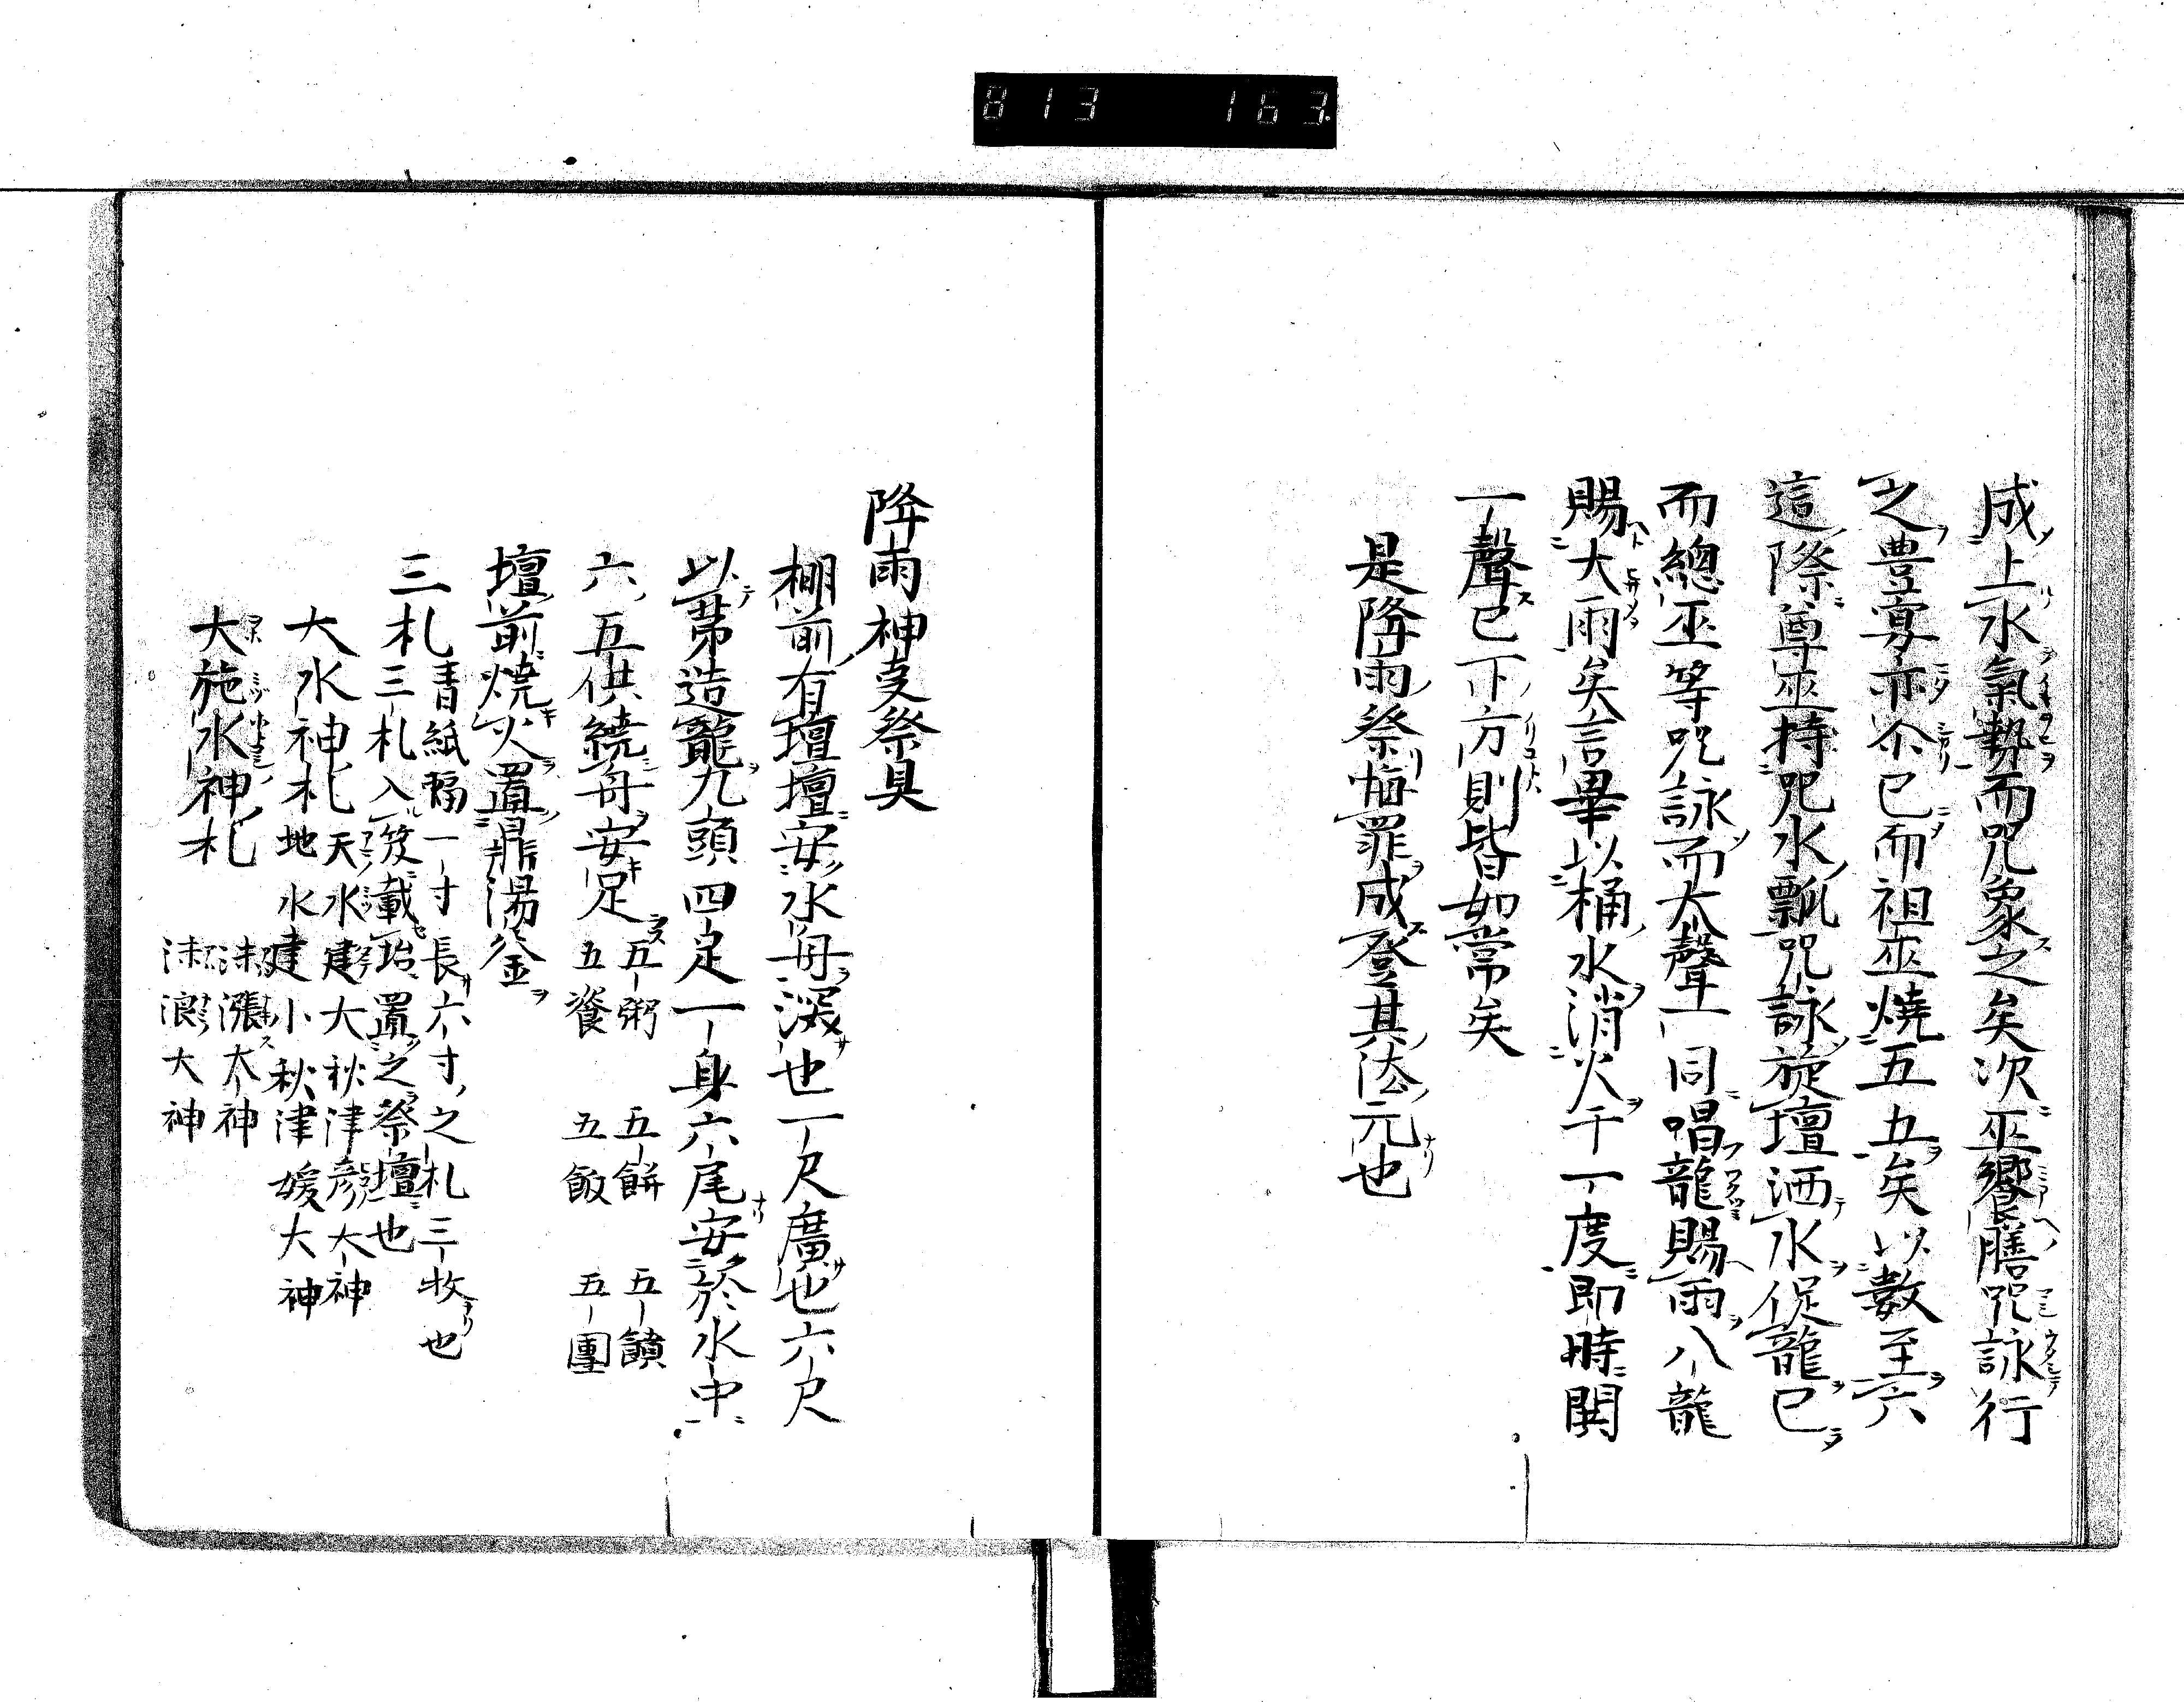 813 163
成上水氣勢而咒象之矣次巫饗膳咒詠行
之豊宴亦尒已而祖巫燒五五矣以數至六
這際尊巫持咒水瓢咒詠旋壇洒水促龍已
而總巫等咒詠而大聲一同唱龍賜雨八龍
賜大雨矣言畢以桶水消火千一度即時関
一聲已下方則皆如常矣
是降雨祭悔罪成登其法元也
降雨神支祭具
棚前有壇壇安水舟深也一尺廣也六尺
以茅造龍九頭四足一身六尾安於水中
六五供繞舟安足 五粥 五餅 五饙
五餈 五飯 五團
壇前燒火置鼎湯釜
三札 青紙幅一寸長六寸之札三牧也
三札入笈載坮置之祭壇也
大水神札 天水建大秋津彦大神
地水建小秋津媛大神
大施水神札 沫漲大神
沫浪大神